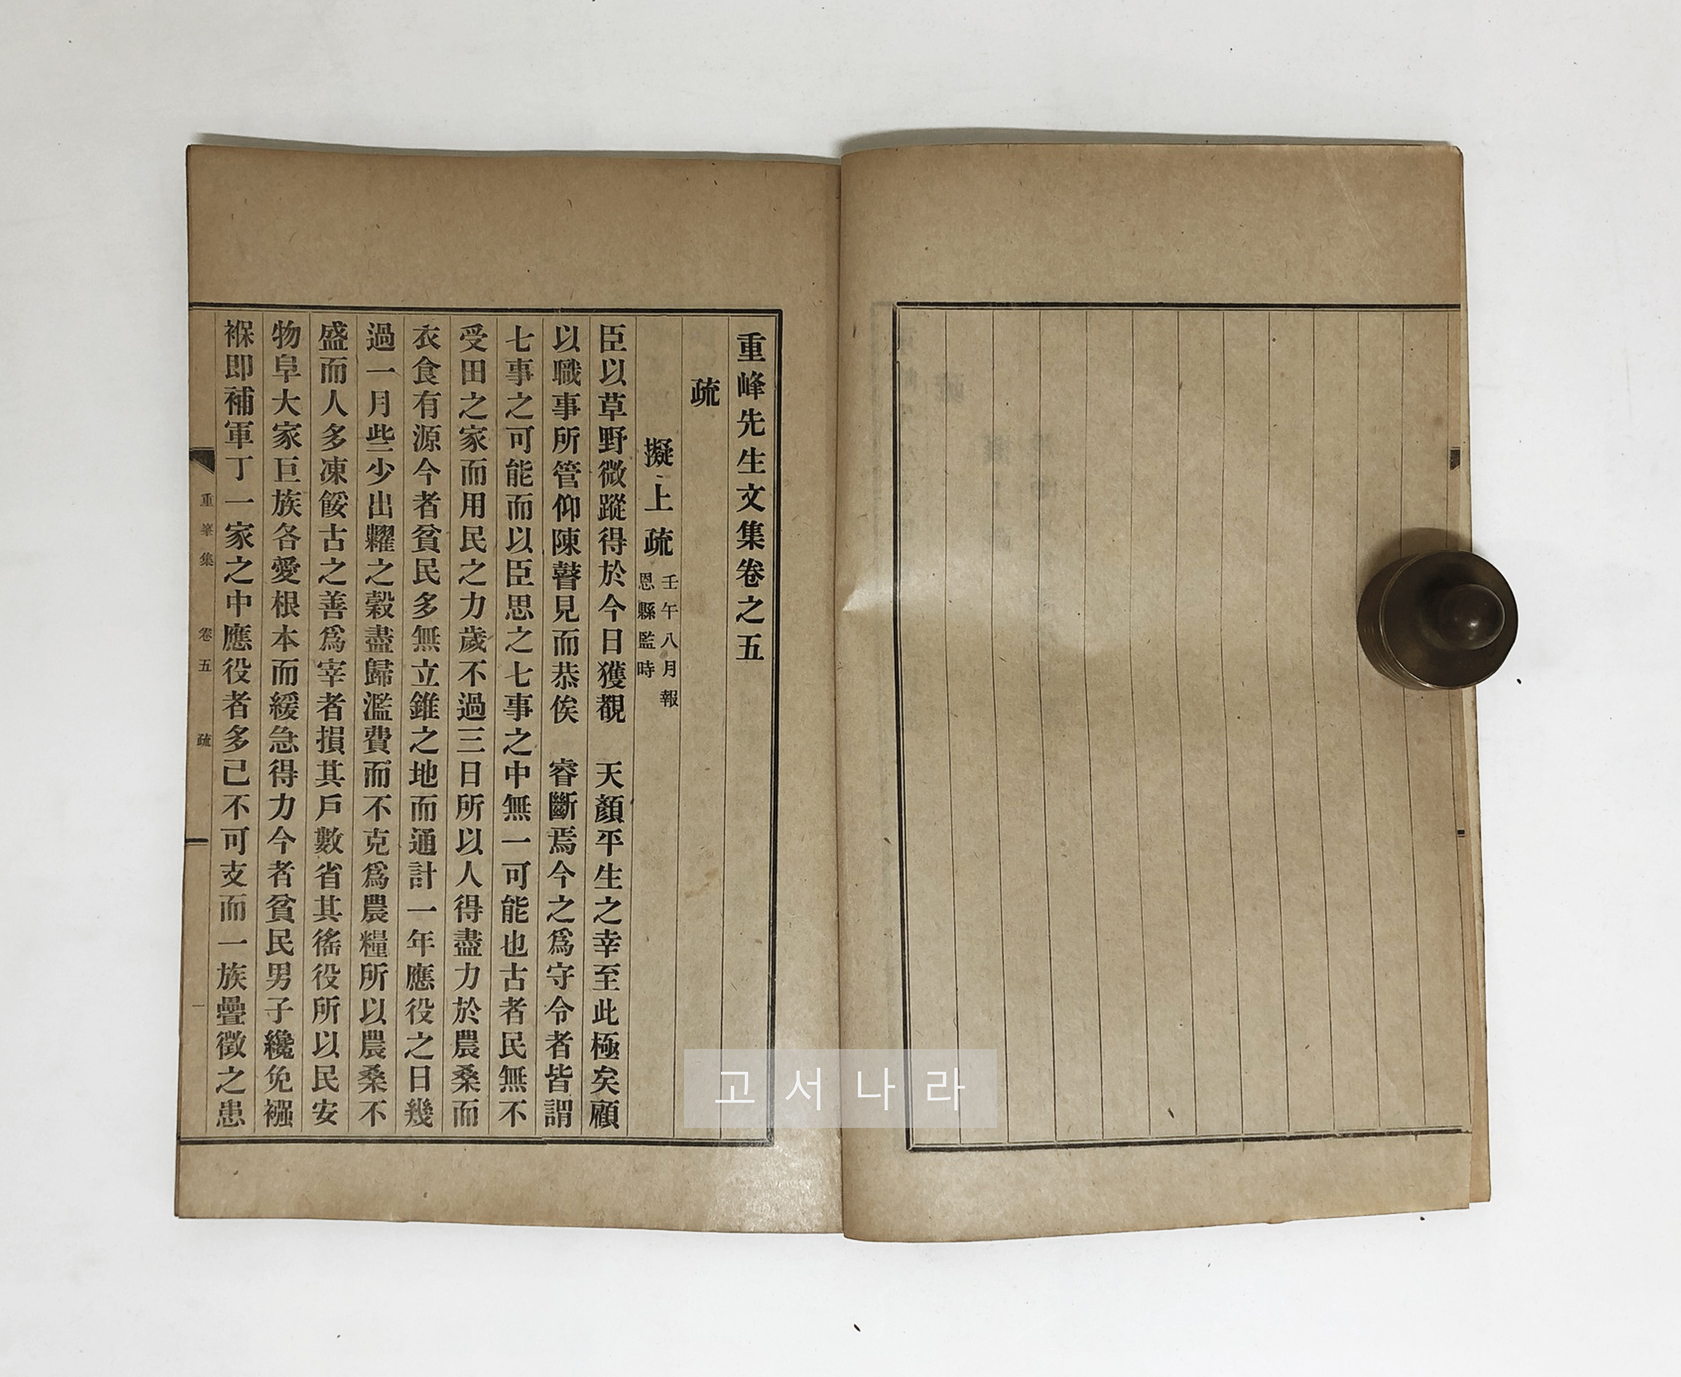 重峰先生文集卷之五
疏
擬上疏 壬午八月報
恩縣監時
臣以草野微蹤得於今日獲覩 天顏平生之幸至此極矣顧
以職事所管仰陳瞽見而恭俟 睿斷焉今之爲守令者皆謂
七事之可能而以臣思之七事之中無一可能也古者民無不
受田之家而用民之力歲不過三日所以人得盡力於農桑而
衣食有源今者貧民多無立錐之地而通計一年應役之日幾
過一月些少出糶之穀盡歸濫費而不克爲農糧所以農桑不
盛而人多凍餒古之善爲宰者損其戶數省其徭役所以民安
物阜大家巨族各愛根本而緩急得力今者貧民男子纔免襁
褓即補軍丁一家之中應役者多己不可支而一族疊徵之患
重峯集 卷五 疏 一
고서나라